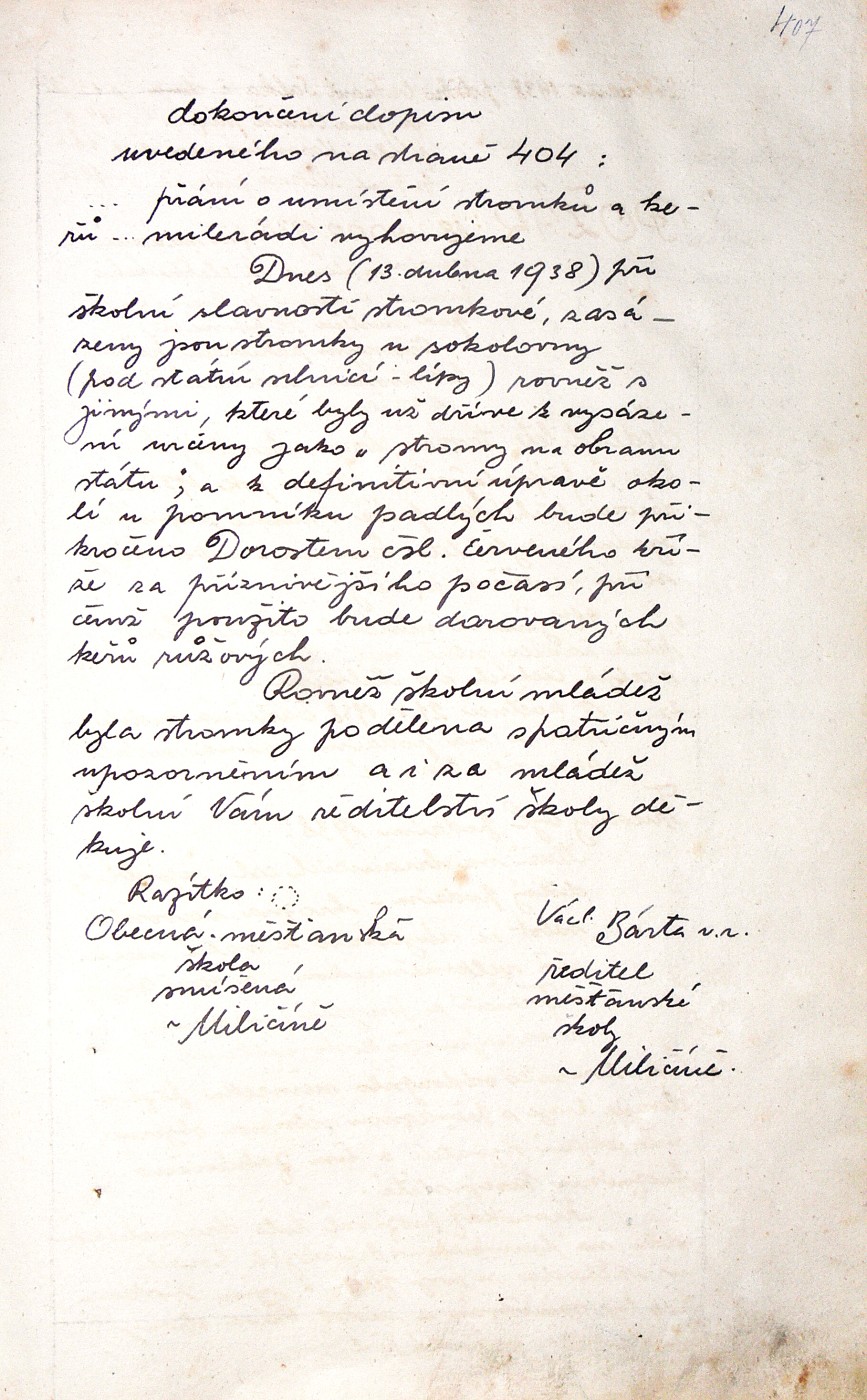 407
dokončení dopisu
uvedeného na straně 404 :
... přání o umístění stromků a ke-
řů ... milerádi vyhovujeme
Dnes (13. dubna 1938) při
školní slavnosti stromkové, zasá-
zeny jsou stromky u sokolovny
(pod státní silnicí - lípy) rovněž s
jinými, které byly už dříve k vysáze-
ní určeny jako „ stromy na obranu
státu “; a k definitivní úpravě oko-
lí u pomníku padlých bude při-
kročeno Dorostem čsl. červeného kří-
že za příznivějšího počasí, při
čemž použito bude darovaných
keřů růžových.
Rovněž školní mládež
byla stromky podělena s patřičným
upozorněním a i za mládež
školní Vám ředitelství školy dě-
kuje.
Razítko :
Obecná. měšťanská
škola
smíšená
v Miličíně
Václ. Bárta v.r.
ředitel
měšťanské
školy
v Miličíně.